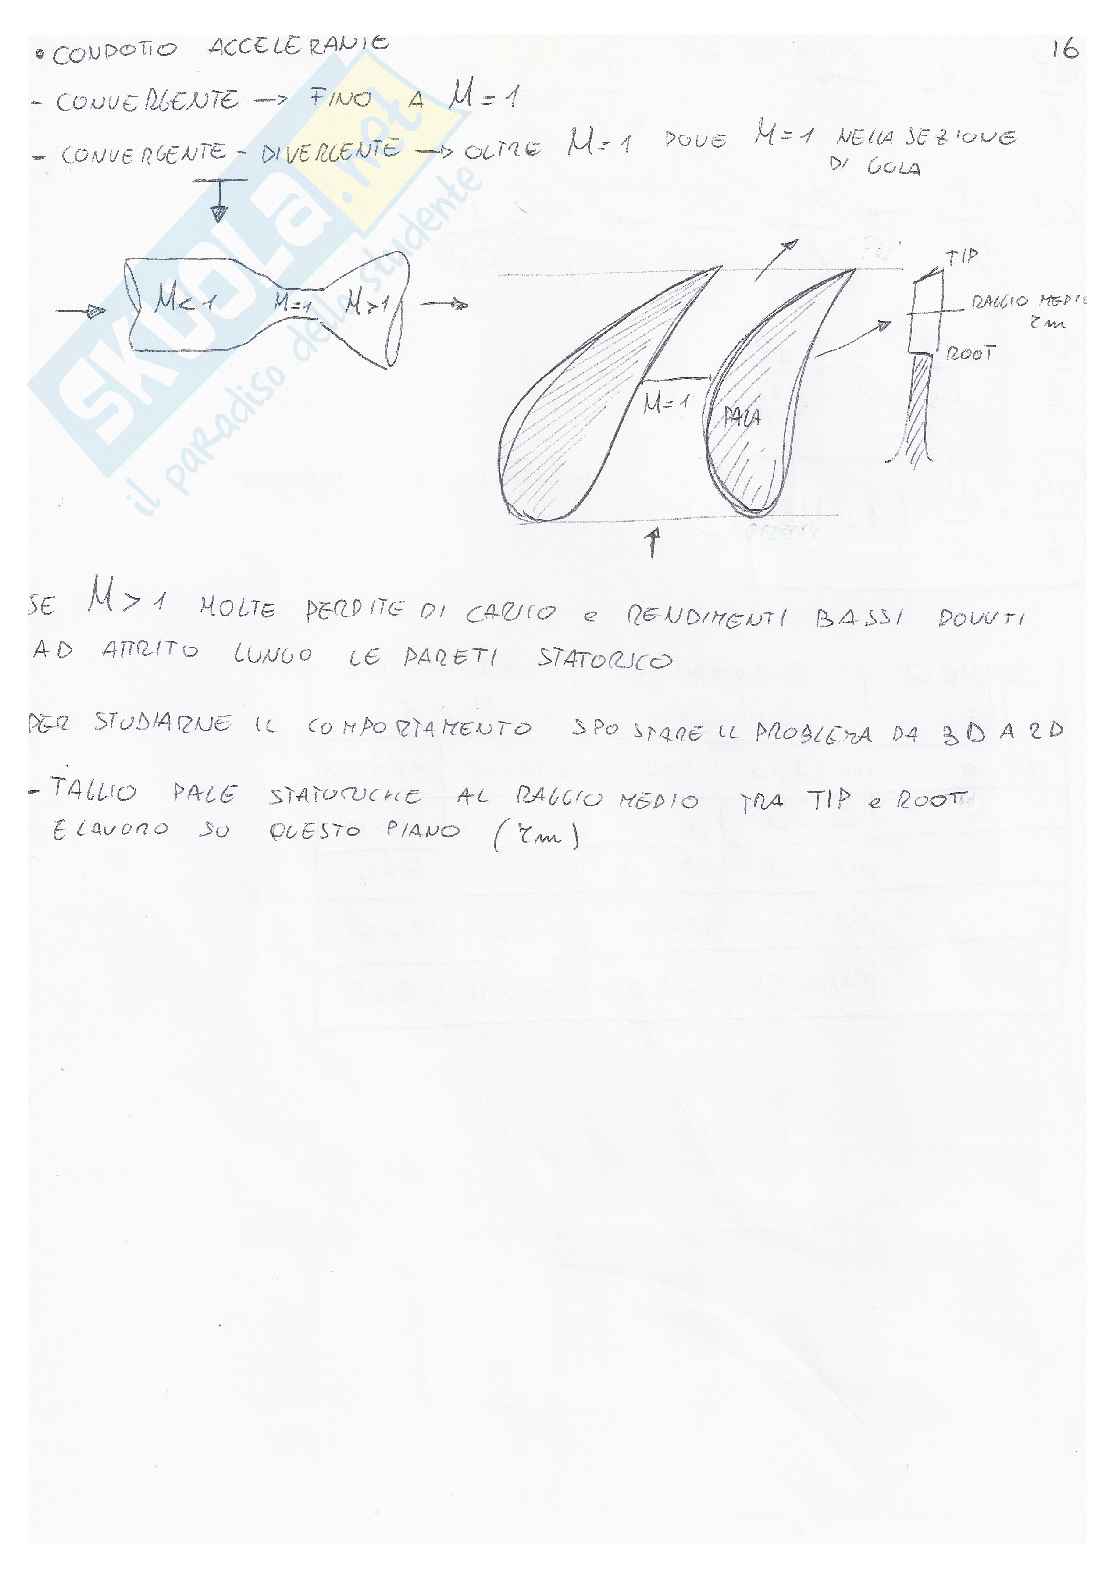 • CONDOTTO ACCELERANTE
16
- CONVERGENTE → FINO A M = 1
- CONVERGENTE - DIVERGENTE → OLTRE M = 1 DOVE M = 1 NELLA SEZIONE
DI GOLA
M < 1
M = 1
M > 1
M = 1
PALA
TIP
RAGGIO MEDIO
rm
ROOT
SE M > 1 MOLTE PERDITE DI CARICO e RENDIMENTI BASSI DOVUTI
AD ATTRITO LUNGO LE PARETI STATORICO
PER STUDIARNE IL COMPORTAMENTO SPOSTARE IL PROBLEMA DA 3D A 2D
- TAGLIO PALE STATORICHE AL RAGGIO MEDIO TRA TIP e ROOT
E LAVORO SU QUESTO PIANO (rm)
SKUOLA.net
il paradiso dello studente